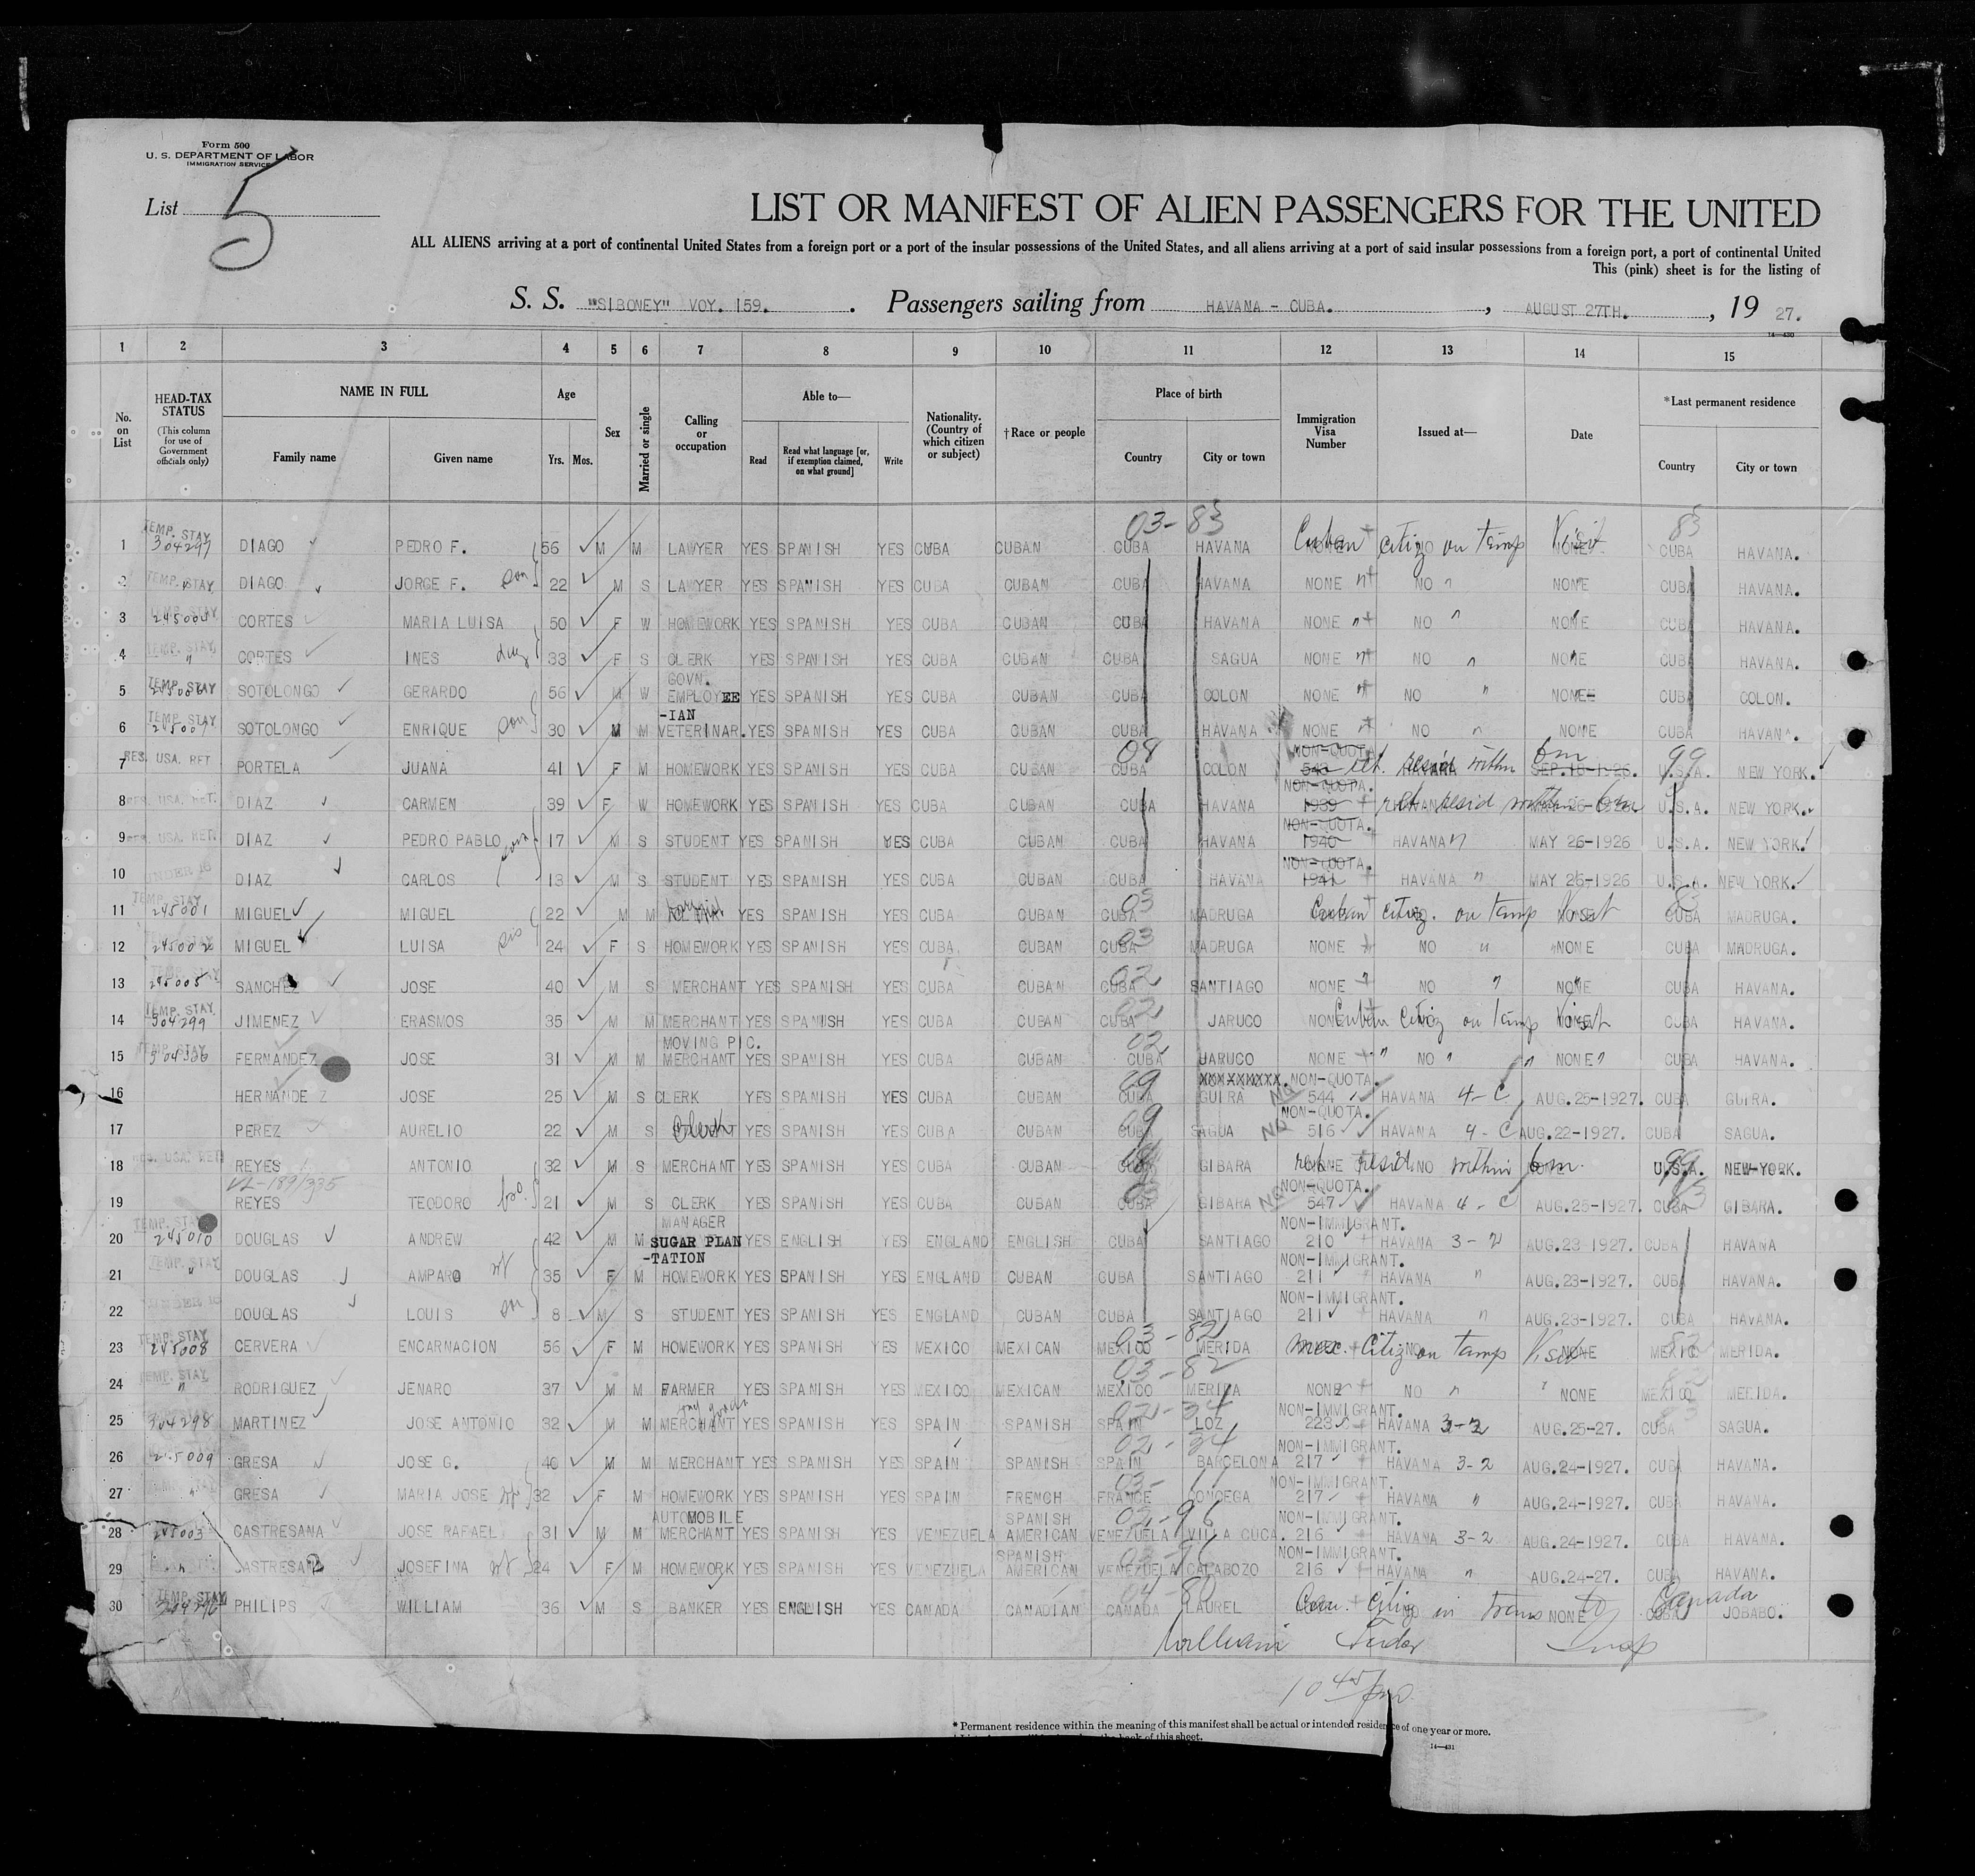 Form 500
U. S. DEPARTMENT OF LABOR
IMMIGRATION SERVICE
List 5
LIST OR MANIFEST OF ALIEN PASSENGERS FOR THE UNITED
ALL ALIENS arriving at a port of continental United States from a foreign port or a port of the insular possessions of the United States, and all aliens arriving at a port of said insular possessions from a foreign port, a port of continental United
This (pink) sheet is for the listing of
S. S. "SIBONEY" VOY. 159. Passengers sailing from HAVANA - CUBA. , AUGUST 27TH. , 19 27.
14—430
1 2 3 4 5 6 7 8 9 10 11 12 13 14 15
No. on List HEAD-TAX STATUS (This column for use of Government officials only) NAME IN FULL Family name Given name Age Yrs. Mos. Sex Married or single Calling or occupation Able to— Read Read what language [or, if exemption claimed, on what ground] Write Nationality. (Country of which citizen or subject) †Race or people Place of birth Country City or town Immigration Visa Number Issued at— Date *Last permanent residence Country City or town
03-83
1 TEMP. STAY 304297 DIAGO PEDRO F. 56 M M LAWYER YES SPANISH YES CUBA CUBAN CUBA HAVANA Cuban citiz on temp Visit CUBA HAVANA.
2 TEMP. STAY DIAGO JORGE F. son 22 M S LAWYER YES SPANISH YES CUBA CUBAN CUBA HAVANA NONE NO NONE CUBA HAVANA.
3 TEMP. STAY CORTES MARIA LUISA 50 F W HOMEWORK YES SPANISH YES CUBA CUBAN CUBA HAVANA NONE NO NONE CUBA HAVANA.
4 TEMP. STAY " CORTES INES 33 F S CLERK YES SPANISH YES CUBA CUBAN CUBA SAGUA NONE NO NONE CUBA HAVANA.
5 TEMP. STAY SOTOLONGO GERARDO 56 M W GOVN. EMPLOYEE YES SPANISH YES CUBA CUBAN CUBA COLON NONE NO NONE CUBA COLON.
6 TEMP. STAY 245007 SOTOLONGO ENRIQUE son 30 M M VETERINAR.-IAN YES SPANISH YES CUBA CUBAN CUBA HAVANA NONE NO NONE CUBA HAVANA.
7 RES. USA. RET PORTELA JUANA 41 F M HOMEWORK YES SPANISH YES CUBA CUBAN CUBA COLON NON-QUOTA 543 ret. resid within 6m SEP.18-1926. U.S.A. NEW YORK.
8 RES. USA. RET. DIAZ CARMEN 39 F W HOMEWORK YES SPANISH YES CUBA CUBAN CUBA HAVANA NON-QUOTA. 1939 ret resid within 6m U.S.A. NEW YORK.
9 RES. USA. RET. DIAZ PEDRO PABLO 17 M S STUDENT YES SPANISH YES CUBA CUBAN CUBA HAVANA NON-QUOTA. 1940 HAVANA MAY 26-1926 U.S.A. NEW YORK.
10 UNDER 16 DIAZ CARLOS 13 M S STUDENT YES SPANISH YES CUBA CUBAN CUBA HAVANA NON-QUOTA. 1941 HAVANA MAY 26-1926 U.S.A. NEW YORK.
11 TEMP. STAY 245001 MIGUEL MIGUEL 22 M M YES SPANISH YES CUBA CUBAN CUBA MADRUGA Cuban citiz. on temp Visit CUBA MADRUGA.
12 245002 MIGUEL LUISA sis 24 F S HOMEWORK YES SPANISH YES CUBA CUBAN CUBA MADRUGA NONE NO NONE CUBA MADRUGA.
13 TEMP. STAY 245005 SANCHEZ JOSE 40 M S MERCHANT YES SPANISH YES CUBA CUBAN CUBA SANTIAGO NONE NO NONE CUBA HAVANA.
14 TEMP. STAY 304299 JIMENEZ ERASMOS 35 M M MERCHANT YES SPANISH YES CUBA CUBAN CUBA JARUCO NONE Cuban Citiz on temp Visit CUBA HAVANA.
15 TEMP. STAY FERNANDEZ JOSE 31 M M MOVING PIC. MERCHANT YES SPANISH YES CUBA CUBAN CUBA JARUCO NONE NO NONE CUBA HAVANA.
16 HERNANDEZ JOSE 25 M S CLERK YES SPANISH YES CUBA CUBAN CUBA GUIRA NON-QUOTA. 544 HAVANA 4-C AUG.25-1927. CUBA GUIRA.
17 PEREZ AURELIO 22 M S Clerk YES SPANISH YES CUBA CUBAN CUBA SAGUA NON-QUOTA. 516 HAVANA 4-C AUG.22-1927. CUBA SAGUA.
18 RES. USA. RET REYES ANTONIO 32 M S MERCHANT YES SPANISH YES CUBA CUBAN CUBA GIBARA ret resid within 6m. U.S.A. NEW-YORK.
VL-189/335
19 REYES TEODORO bro. 21 M S CLERK YES SPANISH YES CUBA CUBAN CUBA GIBARA NON-QUOTA. 547 HAVANA 4-C AUG.25-1927. CUBA GIBARA.
20 TEMP. STAY 245010 DOUGLAS ANDREW 42 M M MANAGER SUGAR PLAN-TATION YES ENGLISH YES ENGLAND ENGLISH CUBA SANTIAGO NON-IMMIGRANT. 210 HAVANA 3-2 AUG.23-1927. CUBA HAVANA
21 TEMP. STAY " DOUGLAS AMPARO wf 35 F M HOMEWORK YES SPANISH YES ENGLAND CUBAN CUBA SANTIAGO NON-IMMIGRANT. 211 HAVANA " AUG.23-1927. CUBA HAVANA.
22 UNDER 16 DOUGLAS LOUIS son 8 M S STUDENT YES SPANISH YES ENGLAND CUBAN CUBA SANTIAGO NON-IMMIGRANT. 211 HAVANA " AUG.23-1927. CUBA HAVANA.
03-82
23 TEMP. STAY 245008 CERVERA ENCARNACION 56 F M HOMEWORK YES SPANISH YES MEXICO MEXICAN MEXICO MERIDA Mex. Citiz on temp Visit NONE MEXICO MERIDA.
03-82
24 TEMP. STAY " RODRIGUEZ JENARO 37 M M FARMER YES SPANISH YES MEXICO MEXICAN MEXICO MERIDA NONE NO NONE MEXICO MERIDA.
02-34
25 304298 MARTINEZ JOSE ANTONIO 32 M M dry goods MERCHANT YES SPANISH YES SPAIN SPANISH SPAIN LOZ NON-IMMIGRANT. 223 HAVANA 3-2 AUG.25-27. CUBA SAGUA.
02-34
26 245009 GRESA JOSE G. 40 M M MERCHANT YES SPANISH YES SPAIN SPANISH SPAIN BARCELONA NON-IMMIGRANT. 217 HAVANA 3-2 AUG.24-1927. CUBA HAVANA.
27 " GRESA MARIA JOSE wf 32 F M HOMEWORK YES SPANISH YES SPAIN FRENCH FRANCE NON-IMMIGRANT. 217 HAVANA " AUG.24-1927. CUBA HAVANA.
02-96
28 245003 CASTRESANA JOSE RAFAEL 31 M M AUTOMOBILE MERCHANT YES SPANISH YES VENEZUELA SPANISH AMERICAN VENEZUELA VILLA CUCA. NON-IMMIGRANT. 216 HAVANA 3-2 AUG.24-1927. CUBA HAVANA.
29 " CASTRESANA JOSEFINA wf 24 F M HOMEWORK YES SPANISH YES VENEZUELA SPANISH AMERICAN VENEZUELA CALABOZO NON-IMMIGRANT. 216 HAVANA " AUG.24-27. CUBA HAVANA.
04-80
30 TEMP. STAY 304296 PHILIPS WILLIAM 36 M S BANKER YES ENGLISH YES CANADA CANADIAN CANADA LAUREL Can. Citiz in trans to Canada NONE CUBA JOBABO.
William Insp
10 45/
* Permanent residence within the meaning of this manifest shall be actual or intended residence of one year or more.
14—431